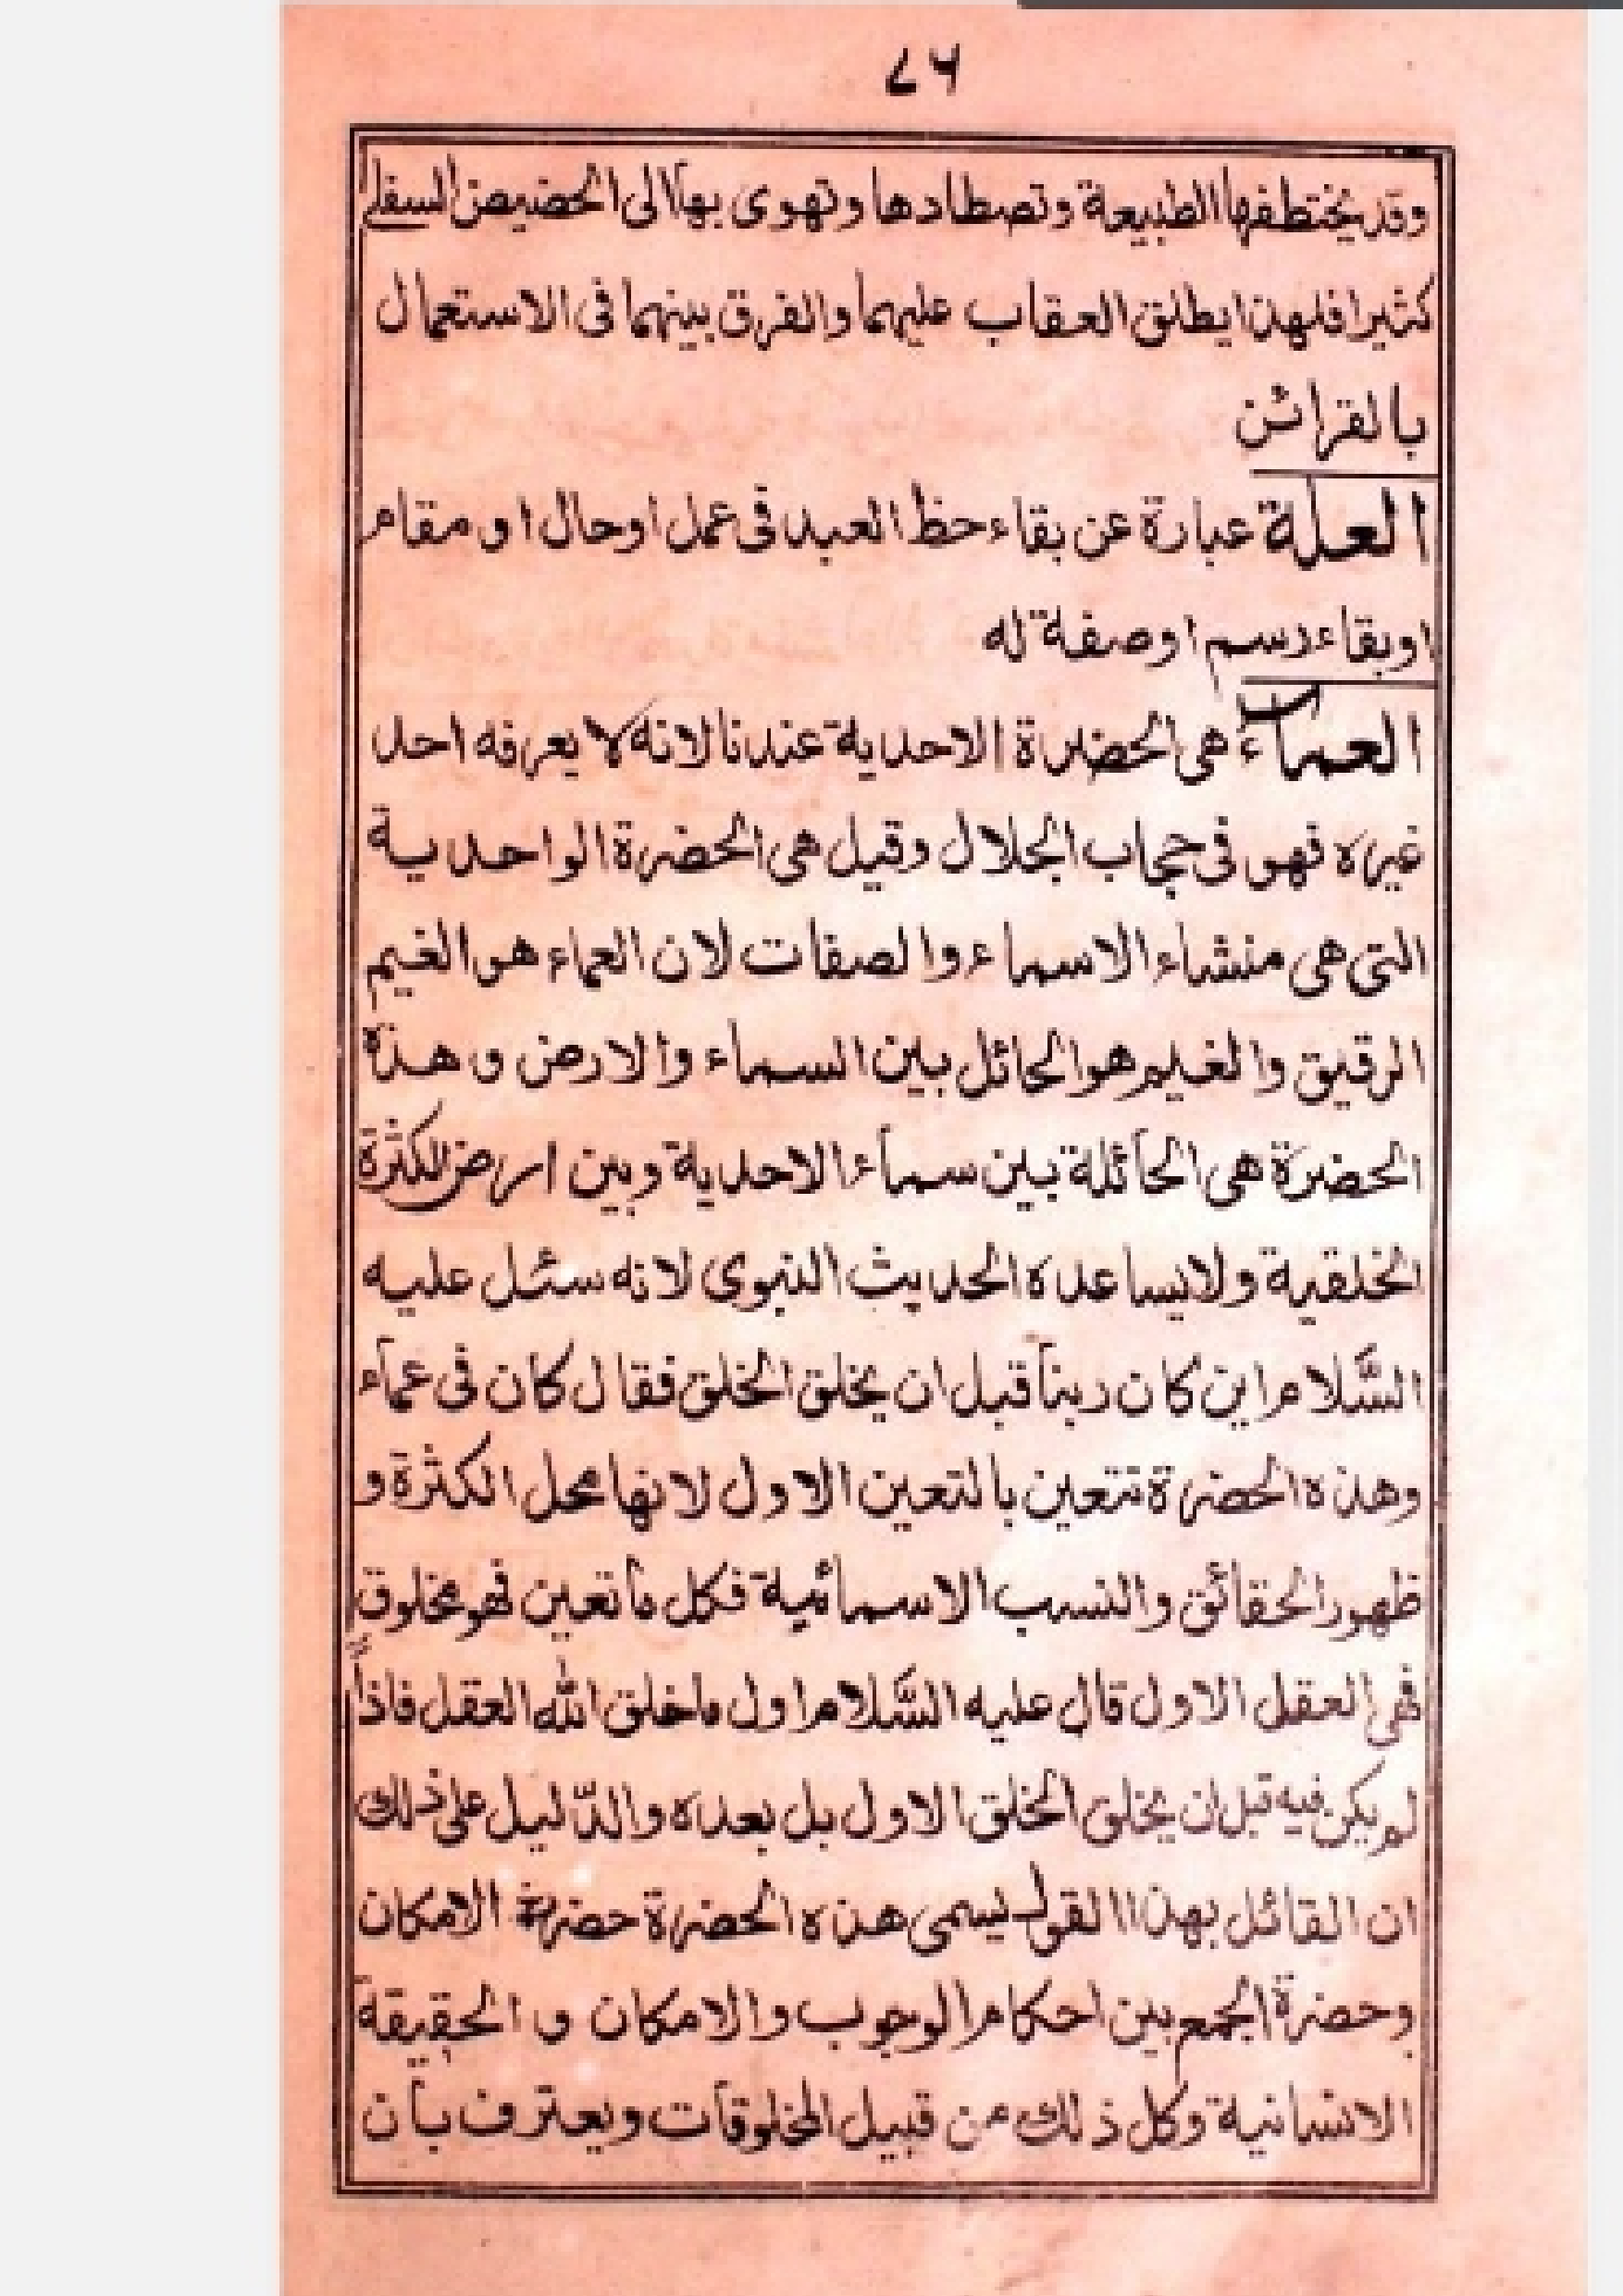 ٧٦
وقد يختطفها الطبيعة وتصطادها وتهوى بها الى الحضيض السفلى
كثيرا فلهذا يطلق العقاب عليهما والفرق بينهما فى الاستعمال
بالقرائن
العلة عبارة عن بقاء حظ العبد فى عمل او حال او مقام
او بقاء رسم او صفة له
العماء هى الحضرة الاحدية عندنا لانه لا يعرفه احد
غيره فهو فى حجاب الجلال وقيل هى الحضرة الواحدية
التى هى منشاء الاسماء والصفات لان العماء هو الغيم
الرقيق والغيم هو الحائل بين السماء والارض و هذه
الحضرة هى الحائلة بين سماء الاحدية وبين ارض الكثرة
الخلقية ولا يساعده الحديث النبوى لانه سئل عليه
السَّلام اين كان ربنا قبل ان يخلق الخلق فقال كان فى عماء
وهذه الحضرة تتعين بالتعين الاول لانها محل الكثرة و
ظهور الحقائق والنسب الاسمائية فكل ما تعين فهو مخلوق
فهى العقل الاول قال عليه السَّلام اول ما خلق الله العقل فاذاً
لم يكن فيه قبل ان يخلق الخلق الاول بل بعده والدّليل على ذلك
ان القائل بهذا القول يسمى هذه الحضرة حضرة الامكان
وحضرة الجمع بين احكام الوجوب والامكان و الحقيقة
الانسانية وكل ذلك من قبيل المخلوقات ويعترف بان